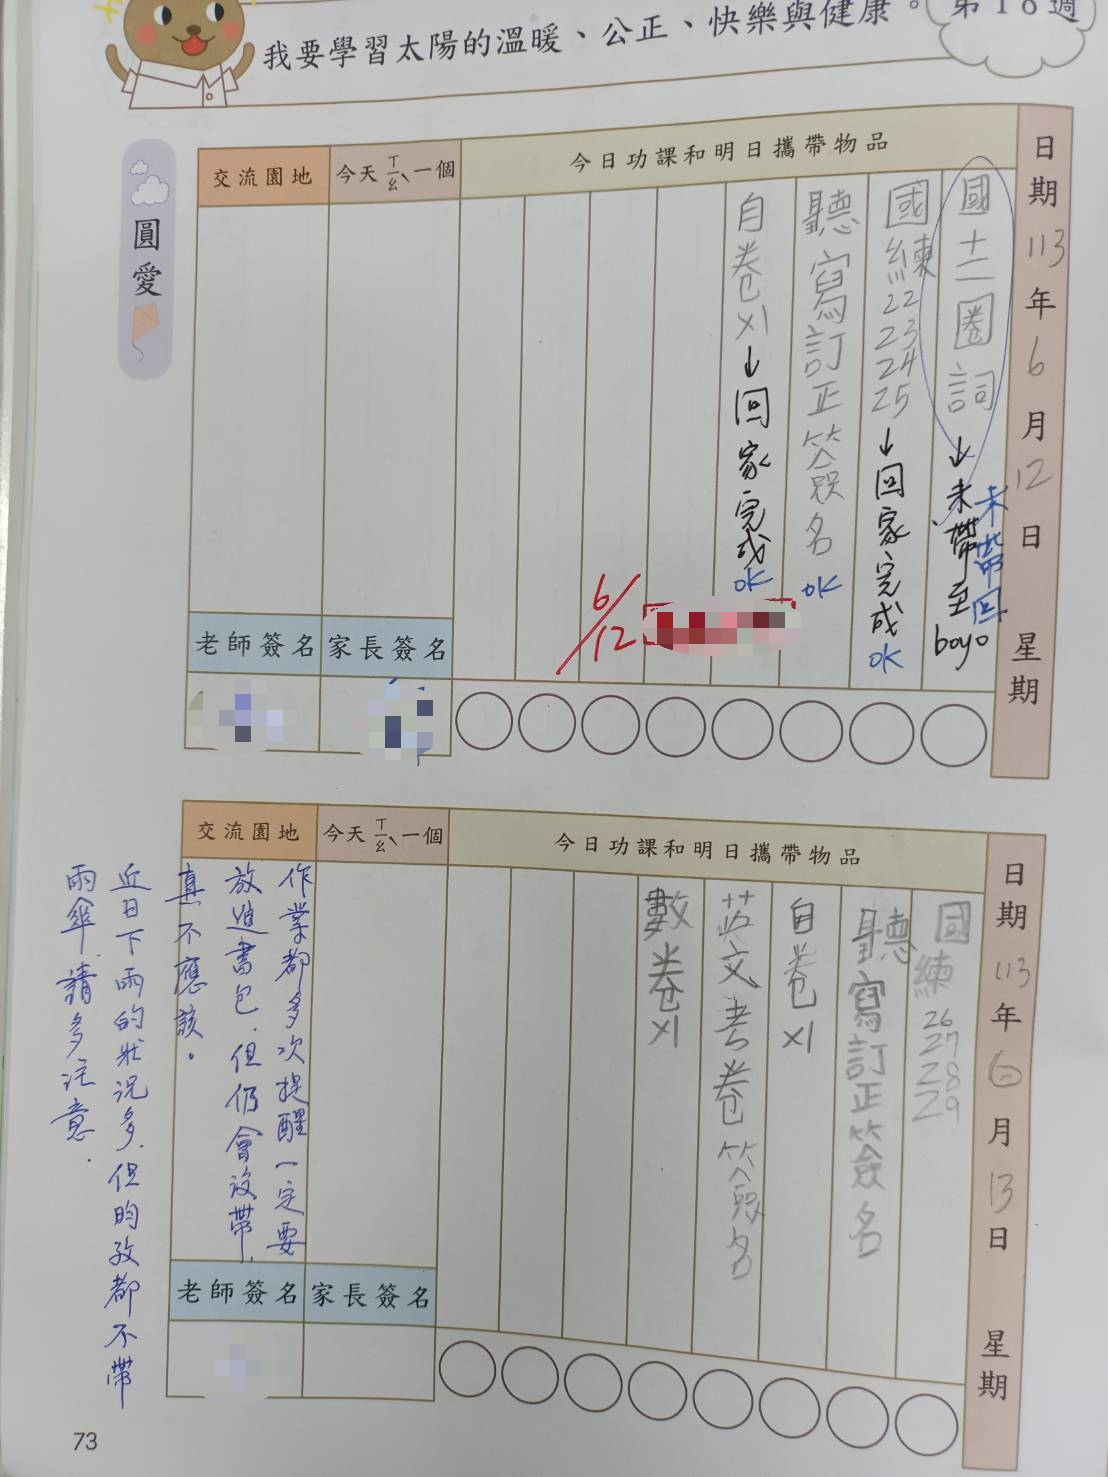 我要學習太陽的溫暖、公正、快樂與健康。
第16週
圓愛
日期113年6月12日 星期
今日功課和明日攜帶物品
國十二圈詞↓未帶至boyo
未帶回
國練22 23 24 25↓回家完成ok
聽寫訂正簽名 ok
自卷x1↓回家完成ok
6/12
今天ㄒㄧㄠˋ一個
交流園地
家長簽名
老師簽名
日期113年6月13日 星期
今日功課和明日攜帶物品
國練26 27 28 29
聽寫訂正簽名
自卷x1
英文考卷簽名
數卷x1
今天ㄒㄧㄠˋ一個
交流園地
作業都多次提醒一定要
放進書包.但仍會沒帶.
真不應該。
近日下雨的狀況多.但昀孜都不帶
雨傘.請多注意.
家長簽名
老師簽名
73